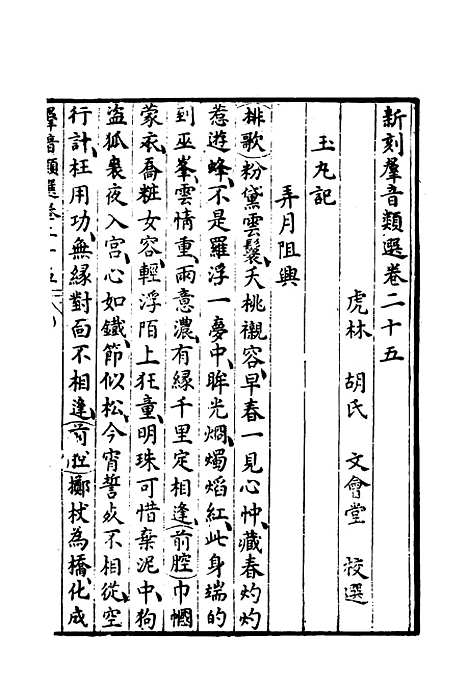 新刻羣音類選卷二十五
虎林　胡氏　文會堂　校選
玉丸記
弄月阻興
排歌粉黛雲鬟、夭桃襯容、早春一見心忡、藏春灼灼
惹遊蜂、不是羅浮一夢中、眸光燜、燭熖紅、此身端的
到巫峯、雲情重、雨意濃、有緣千里定相逢、前腔巾幗
蒙衣、喬粧女容、輕浮陌上狂童、明珠可惜棄泥中、狗
盜狐裘夜入宮、心如鐵、節似松、今宵誓死不相從、空
行計、枉用功、無緣對面不相逢、前腔擲杖為橋、化成
羣音類選卷二十五